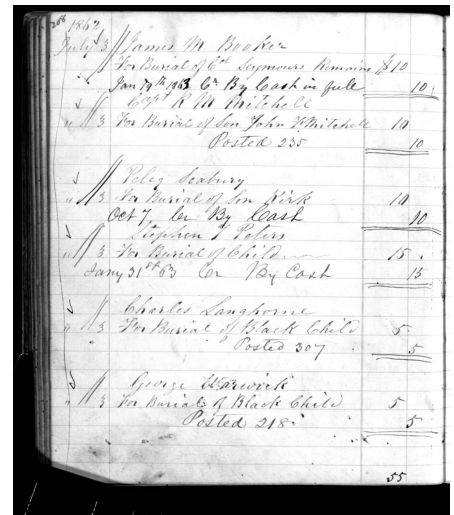 208 1862
July 3 James M Booker
For Burial of Col Seymours Remains $10
Jan 19th 1863 Cr By Cash in full 10
Capt R M Mitchell
" 3 For Burial of Son John Mitchell 10
Posted 235 10
Peleg Seabury
" 3 For Burial of Son Kirk 10
Oct 7, Cr By Cash 10
Stephen Peters
" 3 For Burial of Child 15
Jany 31st 63 Cr By Cash 15
Charles Langhorne
" 3 For Burial of Black Child 5
Posted 307 5
George Warwick
" 3 For Burial of Black Child 5
Posted 218 5
55